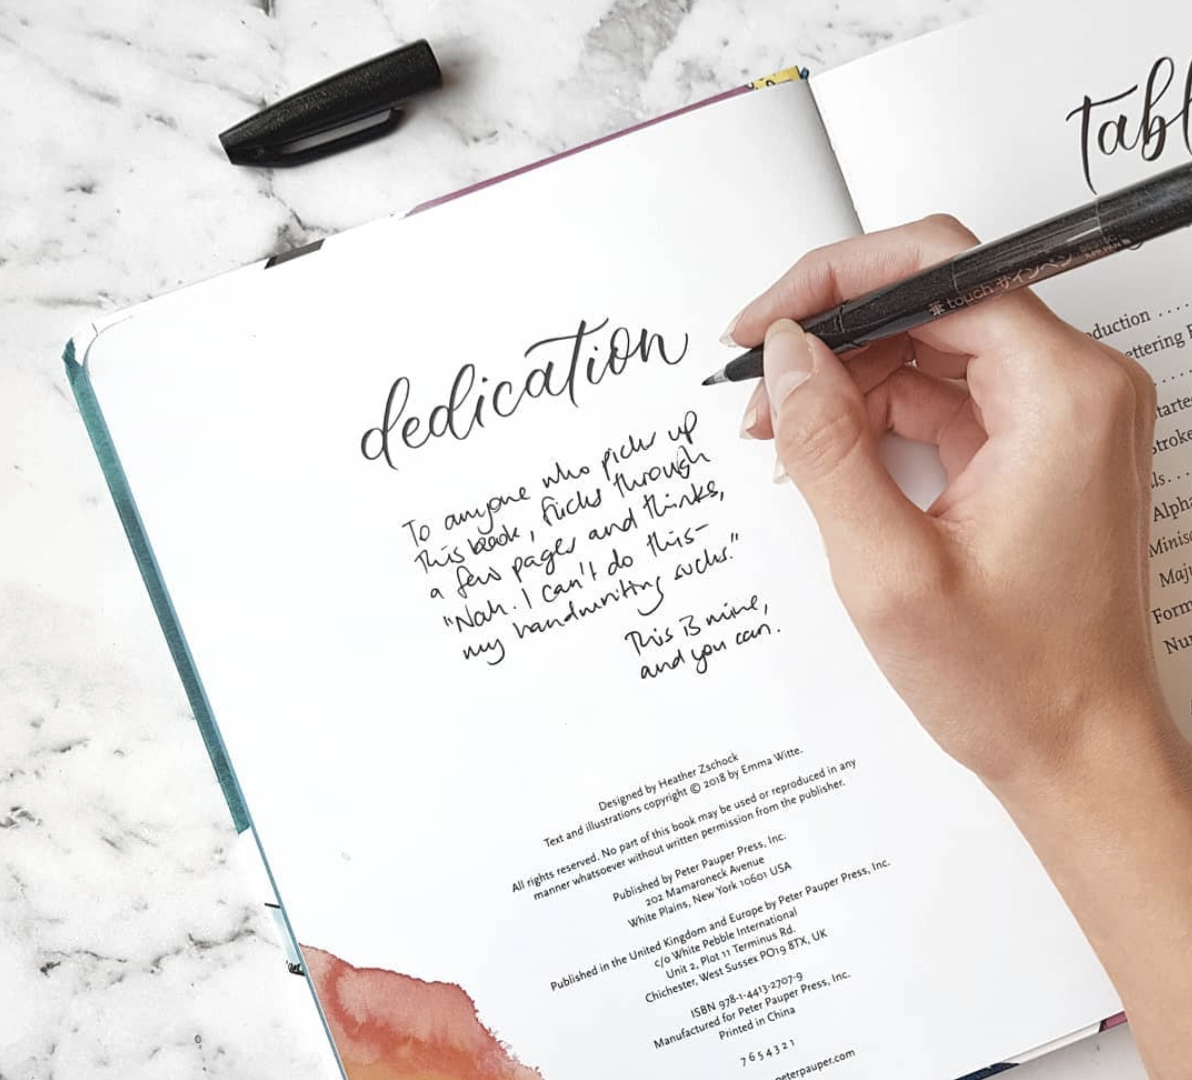 dedication
To anyone who picks up
this book, flicks through
a few pages and thinks,
"Nah. I can't do this–
my handwriting sucks."
This is mine,
and you can.
Designed by Heather Zschock
Text and illustrations copyright © 2018 by Emma Witte.
All rights reserved. No part of this book may be used or reproduced in any
manner whatsoever without written permission from the publisher.
Published by Peter Pauper Press, Inc.
202 Mamaroneck Avenue
White Plains, New York 10601 USA
Published in the United Kingdom and Europe by Peter Pauper Press, Inc.
c/o White Pebble International
Unit 2, Plot 11 Terminus Rd.
Chichester, West Sussex PO19 8TX, UK
ISBN 978-1-4413-2707-9
Manufactured for Peter Pauper Press, Inc.
Printed in China
7 6 5 4 3 2 1
peterpauper.com
touch サインペン
tabl
oduction ....
ettering
tarte
stroke
ls...
Alpha
Minis
Maju
Form
Nu